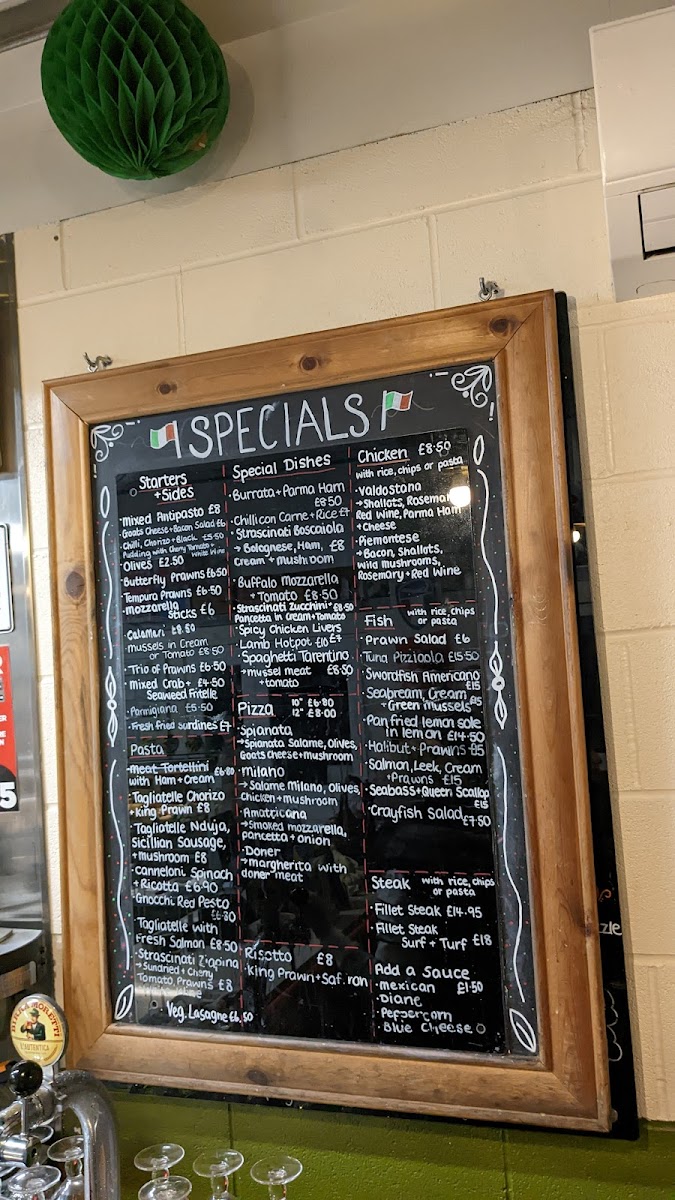 SPECIALS
Starters
+ Sides
·Mixed Antipasto £8
·Goats Cheese+Bacon Salad £6
·Chilli, Chorizo + Black £5·50
Pudding with Cherry Tomato +
White Wine
·Olives £2.50
·Butterfly Prawns £6·50
·Tempura Prawns £6·50
·mozzarella
Sticks £6
·Calamari £8.80
·mussels in Cream
or Tomato £8.50
·Trio of Prawns £6·50
·Mixed Crab + £4·50
Seaweed Fritelle
·Parmigiana £5·50
·Fresh fried sardines £7
Pasta
·Meat Tortellini
with Ham + Cream £6·80
·Tagliatelle Chorizo
+ King Prawn £8
·Tagliatelle Nduja,
Sicillian Sausage,
+ mushroom £8
·Canneloni Spinach
+ Ricotta £6·90
·Gnocchi Red Pesto
£6.80
·Tagliatelle with
Fresh Salmon £8·50
·Strascinati Zi'apina
→ Sundried + Cherry
Tomato, Prawns £8
·Veg. Lasagne £6.50
Special Dishes
·Burrata + Parma Ham
£8·50
·Chilli con Carne + Rice £7
·Strascinati Boscaiola
→ Bolognese, Ham, £8
Cream + mushroom
·Buffalo Mozzarella
+ Tomato £8·50
·Strascinati Zucchini £8·50
Pancetta in Cream+Tomato
·Spicy Chicken Livers
£7
·Lamb Hotpot £10
·Spaghetti Tarentino
→ mussel meat £8·50
+ tomato
Pizza 10" £6·80
12" £8·00
·Spianata
→ Spianata Salame, Olives,
Goats cheese + mushroom
·Milano
→ Salame Milano, Olives,
Chicken + mushroom
·Amatricana
→ Smoked mozzarella,
pancetta + onion
·Doner
→ margherita with
doner meat
Risotto £8
·King Prawn + Saffron
Chicken £8·50
with rice, chips or pasta
·Valdostana
→ Shallots, Rosemary
Red Wine, Parma Ham
+ Cheese
·Piemontese
→ Bacon, Shallots,
Wild mushrooms,
Rosemary + Red Wine
Fish with rice, chips
or pasta
·Prawn Salad £6
·Tuna Pizziaola £15·50
·Swordfish Americano
£15
·Seabream, Cream
+ Green Mussels £15
·Pan fried lemon sole
in lemon £14·50
·Halibut + Prawns £15
·Salmon, Leek, Cream
+ Prawns £15
·Seabass + Queen Scallop
£15
·Crayfish Salad
£7·50
Steak with rice, chips
or pasta
·Fillet Steak £14.95
·Fillet Steak
Surf + Turf £18
Add a Sauce
·mexican £1·50
·Diane
·Peppercorn
·Blue Cheese
BIRRA MORETTI
L'AUTENTICA
zle
5